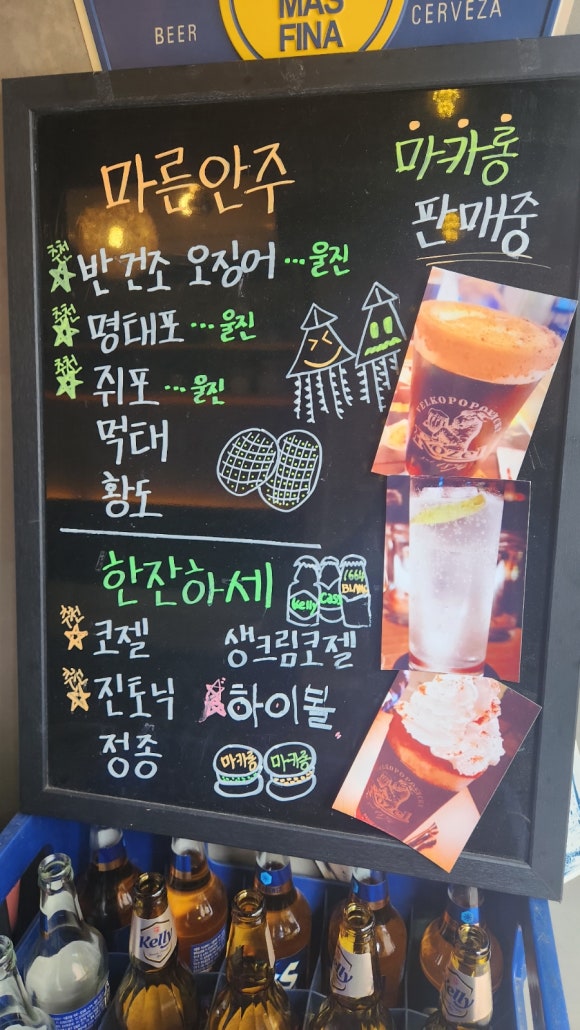 BEER
MAS
FINA
CERVEZA
마른안주
마카롱
판매중
추천 반건조 오징어 ... 울진
추천 명태포 ... 울진
추천 쥐포 ... 울진
먹태
황도
한잔하세
Kelly
Cass
1664
BLANC
추천 코젤
생크림코젤
추천 진토닉
하이볼
정종
마카롱
마카롱
VELKOPOPOVICKÝ
Kozel
Kelly
Kelly
Kelly